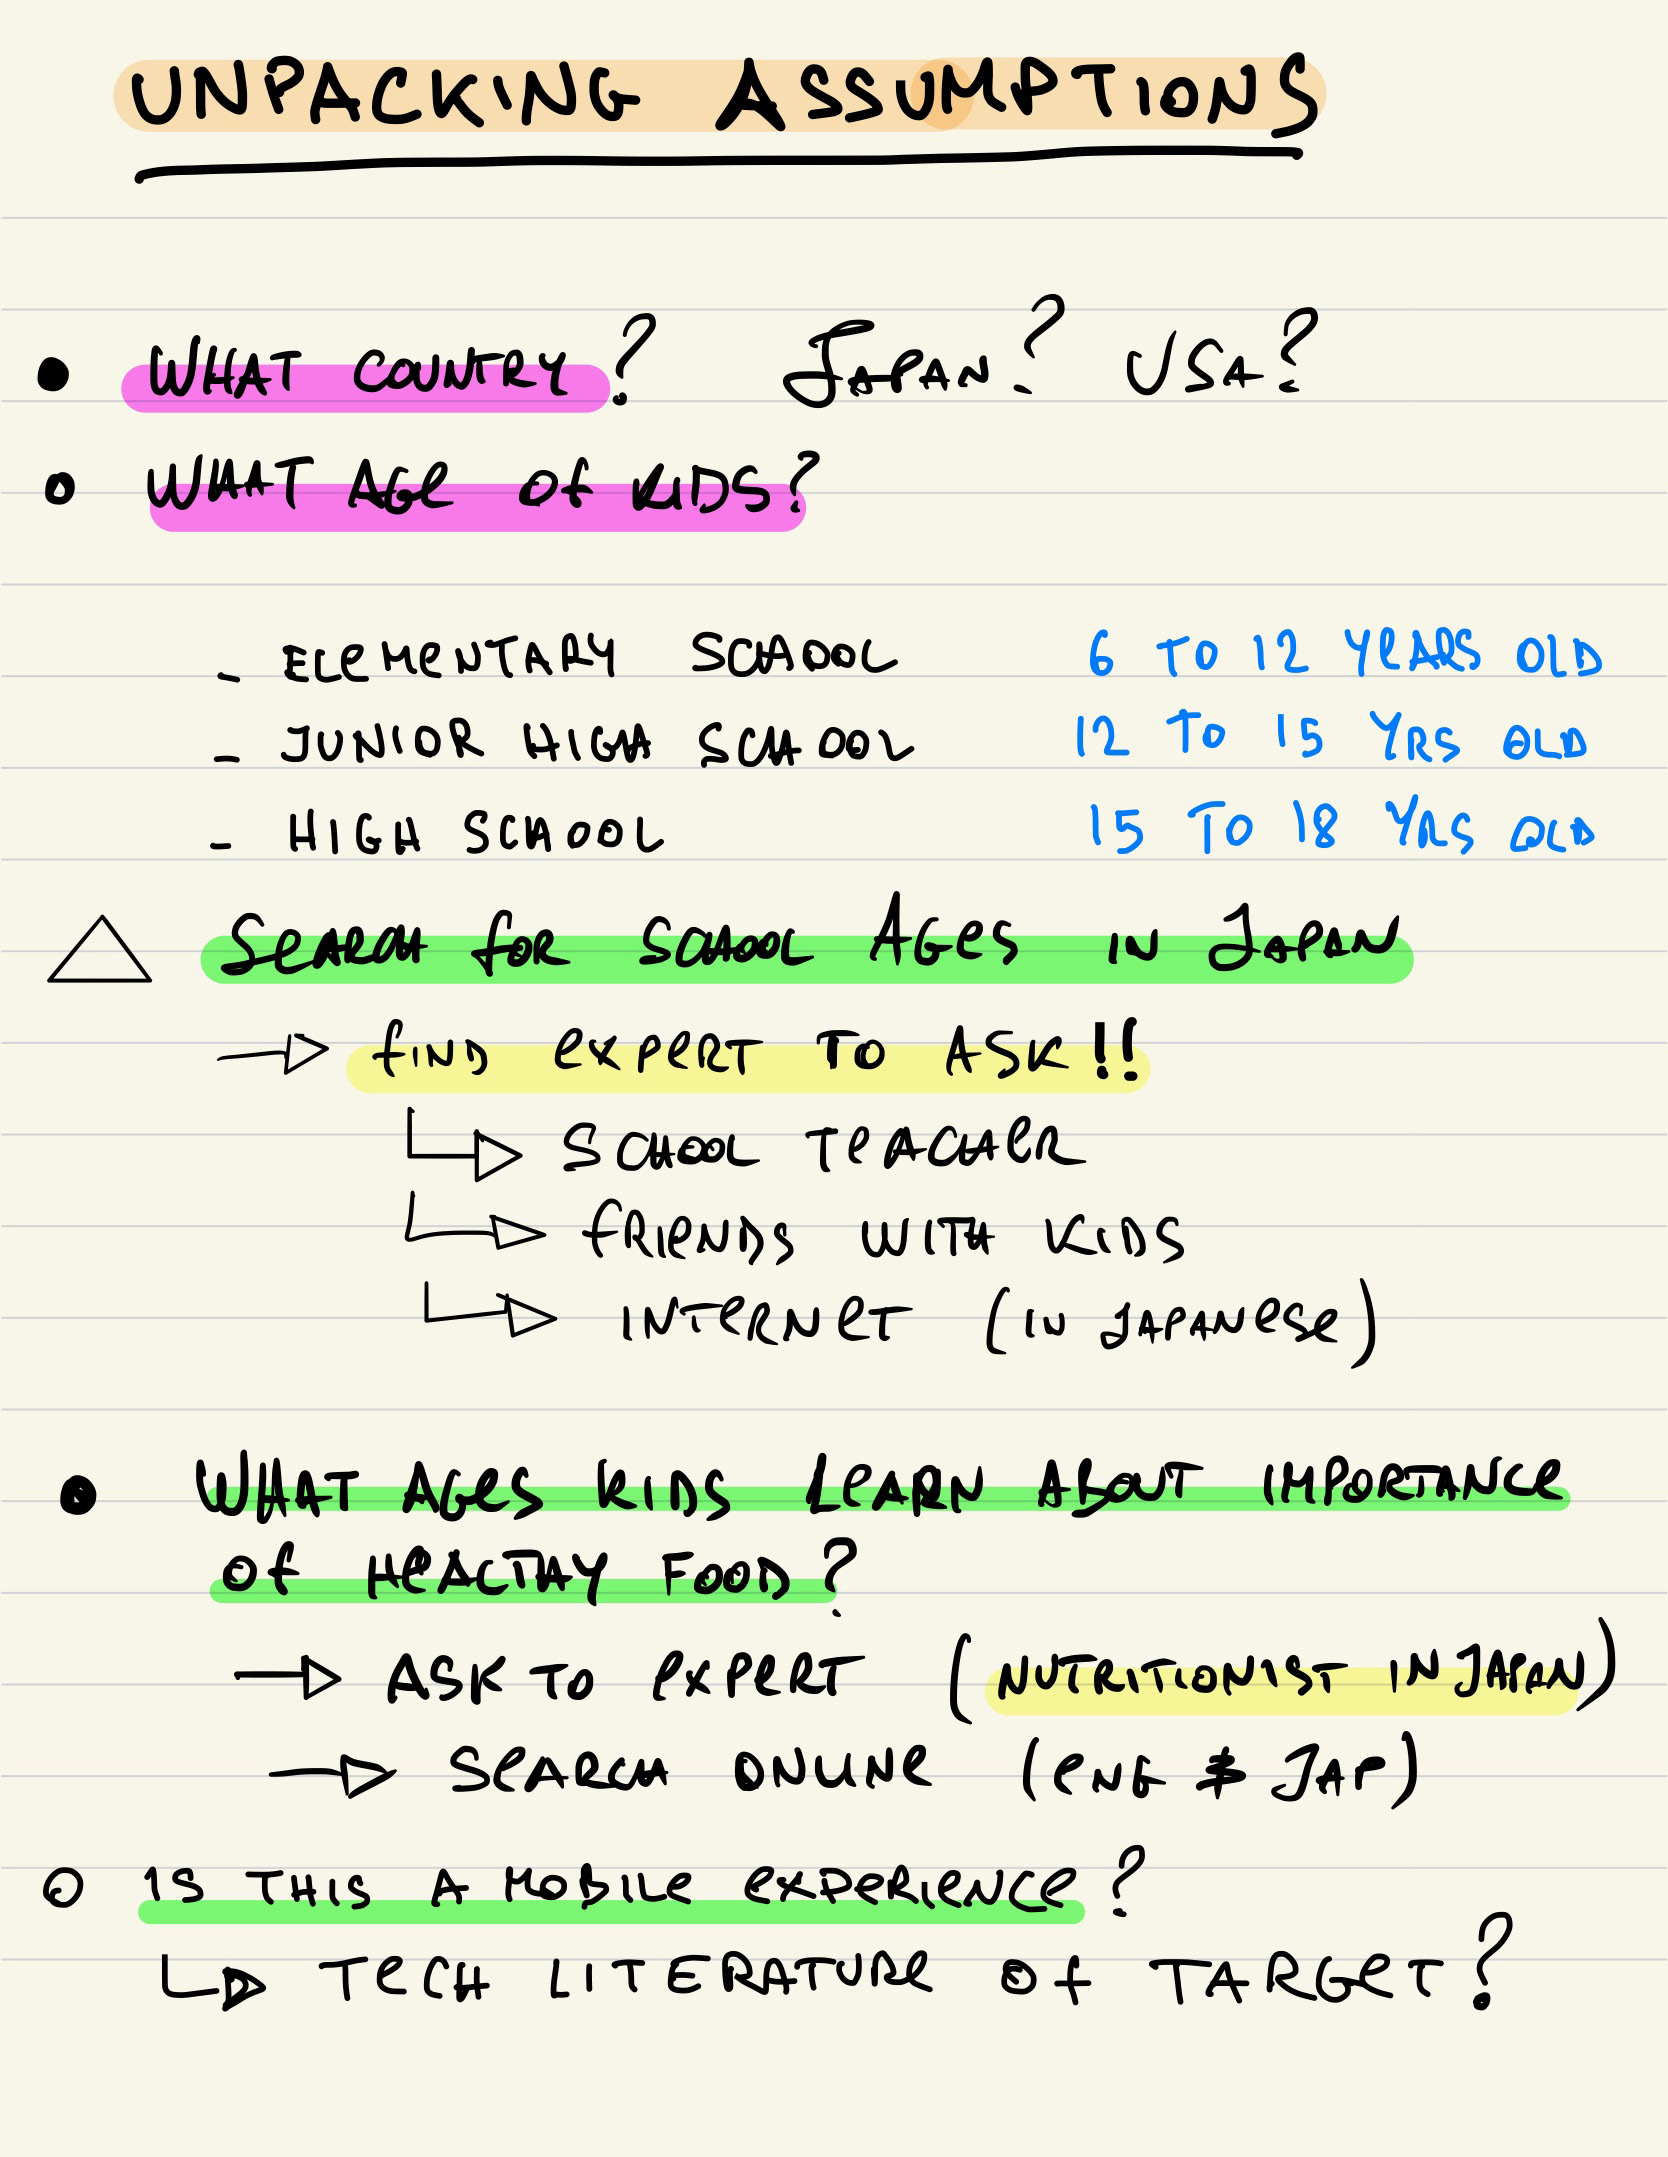 UNPACKING ASSUMPTIONS
WHAT COUNTRY? JAPAN? USA?
WHAT AGE OF KIDS?
- ELEMENTARY SCHOOL 6 TO 12 YEARS OLD
- JUNIOR HIGH SCHOOL 12 TO 15 YRS OLD
- HIGH SCHOOL 15 TO 18 YRS OLD
△ SEARCH FOR SCHOOL AGES IN JAPAN
→ FIND EXPERT TO ASK!!
↳ SCHOOL TEACHER
↳ FRIENDS WITH KIDS
↳ INTERNET (IN JAPANESE)
WHAT AGES KIDS LEARN ABOUT IMPORTANCE
OF HEALTHY FOOD?
→ ASK TO EXPERT (NUTRITIONIST IN JAPAN)
→ SEARCH ONLINE (ENG & JAP)
IS THIS A MOBILE EXPERIENCE?
↳ TECH LITERATURE OF TARGET?